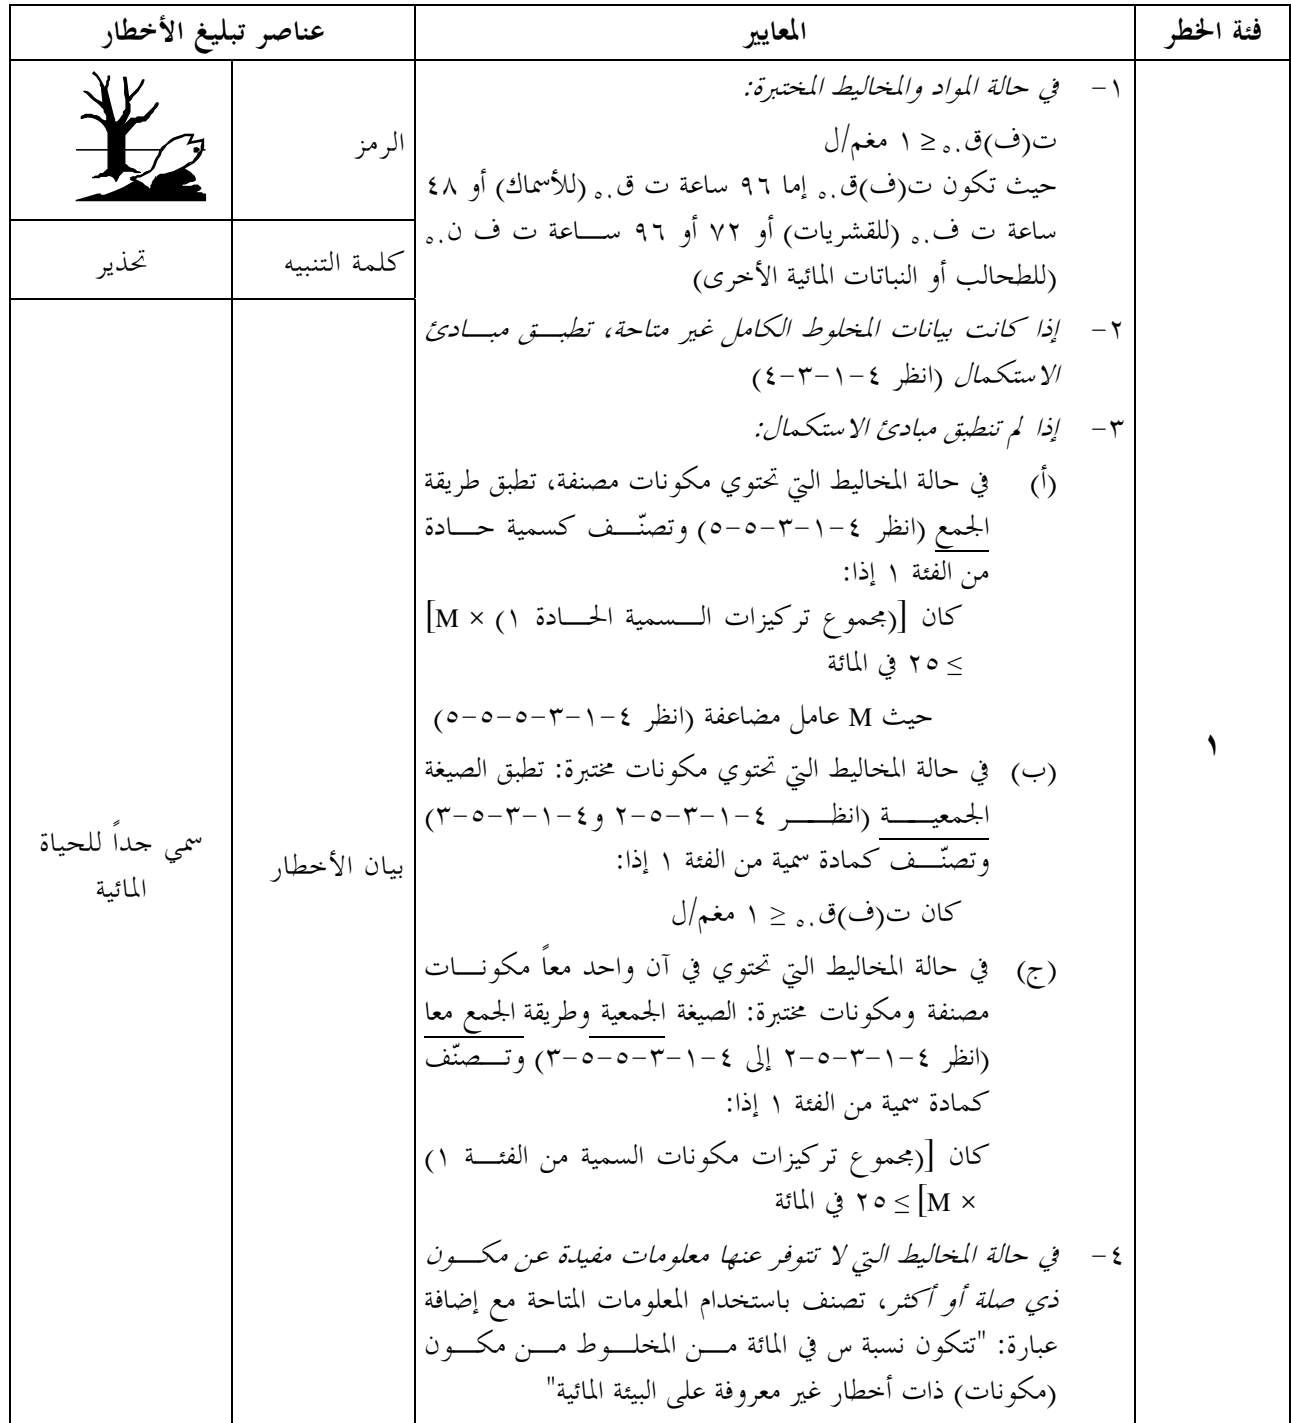 فئة الخطر
المعايير
عناصر تبليغ الأخطار
١
١- في حالة المواد والمخاليط المختبرة:
ت(ف)ق.٥ ≤ ١ مغم/ل
حيث تكون ت(ف)ق.٥ إما ٩٦ ساعة ت ق.٥ (للأسماك) أو ٤٨
ساعة ت ف.٥ (للقشريات) أو ٧٢ أو ٩٦ ساعة ت ف ن.٥
(للطحالب أو النباتات المائية الأخرى)
٢- إذا كانت بيانات المخلوط الكامل غير متاحة، تطبق مبادئ
الاستكمال (انظر ٤-١-٣-٤)
٣- إذا لم تنطبق مبادئ الاستكمال:
(أ) في حالة المخاليط التي تحتوي مكونات مصنفة، تطبق طريقة
الجمع (انظر ٤-١-٣-٥-٥) وتصنّف كسمية حادة
من الفئة ١ إذا:
كان [(مجموع تركيزات السمية الحادة ١) × M]
≥ ٢٥ في المائة
حيث M عامل مضاعفة (انظر ٤-١-٣-٥-٥-٥)
(ب) في حالة المخاليط التي تحتوي مكونات مختبرة: تطبق الصيغة
الجمعية (انظر ٤-١-٣-٥-٢ و٤-١-٣-٥-٣)
وتصنّف كمادة سمية من الفئة ١ إذا:
كان ت(ف)ق.٥ ≤ ١ مغم/ل
(ج) في حالة المخاليط التي تحتوي في آن واحد معاً مكونات
مصنفة ومكونات مختبرة: الصيغة الجمعية وطريقة الجمع معا
(انظر ٤-١-٣-٥-٢ إلى ٤-١-٣-٥-٥-٣) وتصنّف
كمادة سمية من الفئة ١ إذا:
كان [(مجموع تركيزات مكونات السمية من الفئة ١)
× M] ≥ ٢٥ في المائة
٤- في حالة المخاليط التي لا تتوفر عنها معلومات مفيدة عن مكون
ذي صلة أو أكثر، تصنف باستخدام المعلومات المتاحة مع إضافة
عبارة: "تتكون نسبة س في المائة من المخلوط من مكون
(مكونات) ذات أخطار غير معروفة على البيئة المائية"
الرمز
كلمة التنبيه
تحذير
بيان الأخطار
سمي جداً للحياة
المائية